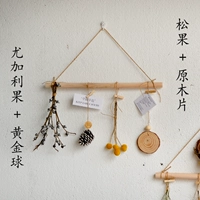 松果+原木片
尤加利果+黃金球